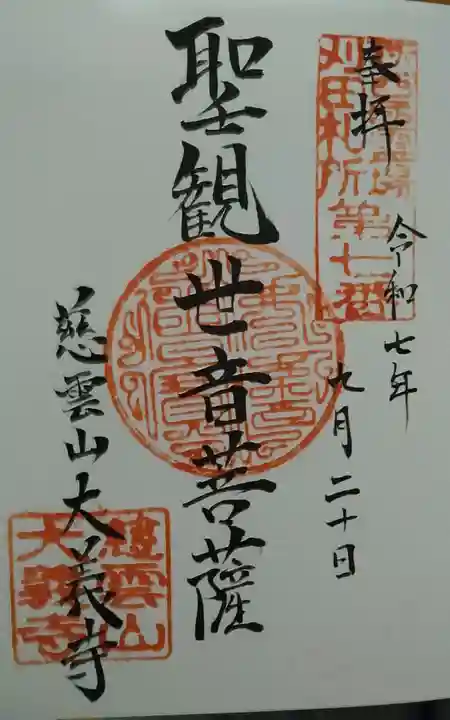 奉拝
令和七年
九月二十日
刈田札所第七番
聖観世音菩薩
慈雲山大義寺
慈雲山
大義寺